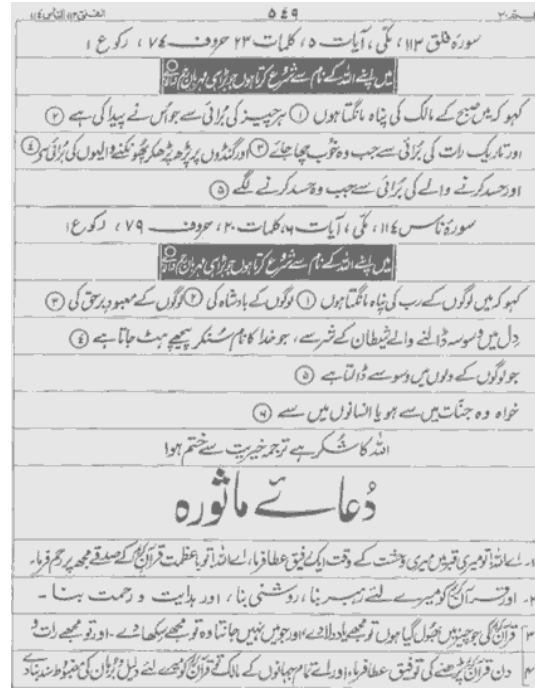 عم ٣٠ ٥٤٩ الفلق ١١٣ الناس ١١٤
سورۂ فلق ١١٣، مکّی، آیات ٥، کلمات ٢٣ حروف ٧٤، رکوع ١
میں اپنے اللہ کے نام سے شروع کرتا ہوں جو بڑا ہی مہربان
کہو کہ میں صبح کے مالک کی پناہ مانگتا ہوں ① ہر چیز کی بُرائی سے جو اُس نے پیدا کی ہے ②
اور تاریک رات کی بُرائی سے جب وہ خوب چھا جائے ③ اور گنڈوں پر پڑھ پڑھ کر پھونکنے والیوں کی بُرائی سے ④
اور حسد کرنے والے کی بُرائی سے جب وہ حسد کرنے لگے ⑤
سورۂ ناس ١١٤، مکّی، آیات ٦، کلمات ٢٠، حروف ٧٩، رکوع ١
میں اپنے اللہ کے نام سے شروع کرتا ہوں جو بڑا ہی مہربان
کہو کہ میں لوگوں کے رب کی پناہ مانگتا ہوں ① لوگوں کے بادشاہ کی ② لوگوں کے معبود برحق کی ③
دِل میں وسوسہ ڈالنے والے شیطان کے شر سے، جو خدا کا نام سُنکر پیچھے ہٹ جاتا ہے ④
جو لوگوں کے دلوں میں وسوسے ڈالتا ہے ⑤
خواہ وہ جنّات میں سے ہو یا انسانوں میں سے ⑥
اللہ کا شُکر ہے ترجمہ خیریت سے ختم ہوا
دُعائے ماثورہ
١۔ اے اللہ! تو میری قبر میں میری وحشت کے وقت ایک رفیق عطا فرما، اے اللہ! تو باعظمت قرآن کریم کے صدقے مجھ پر رحم فرما۔
٢۔ اور قرآن کریم کو میرے لئے رہبر بنا، روشنی بنا، اور ہدایت و رحمت بنا ۔
٣ قرآن کریم کی جو چیز میں بھول گیا ہوں تو مجھے یاد دلا دے، اور جو میں نہیں جانتا وہ تو مجھے سکھا دے ۔ اور تو مجھے رات و
٤ دن قرآن کریم پڑھنے کی توفیق عطا فرما، اور اے تمام جہانوں کے مالک تو قرآن کریم کو میرے لئے دلیل و بُرہان کی مضبوط سند بنا دے